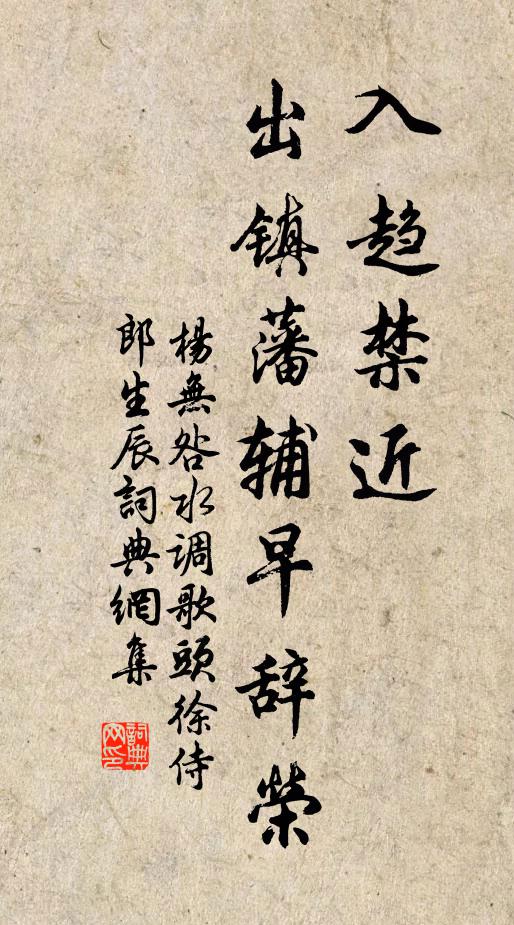 入趋禁近
出镇藩辅早辞荣
楊無咎水调歌頭徐侍
郎生辰詞典網集
詞典网印